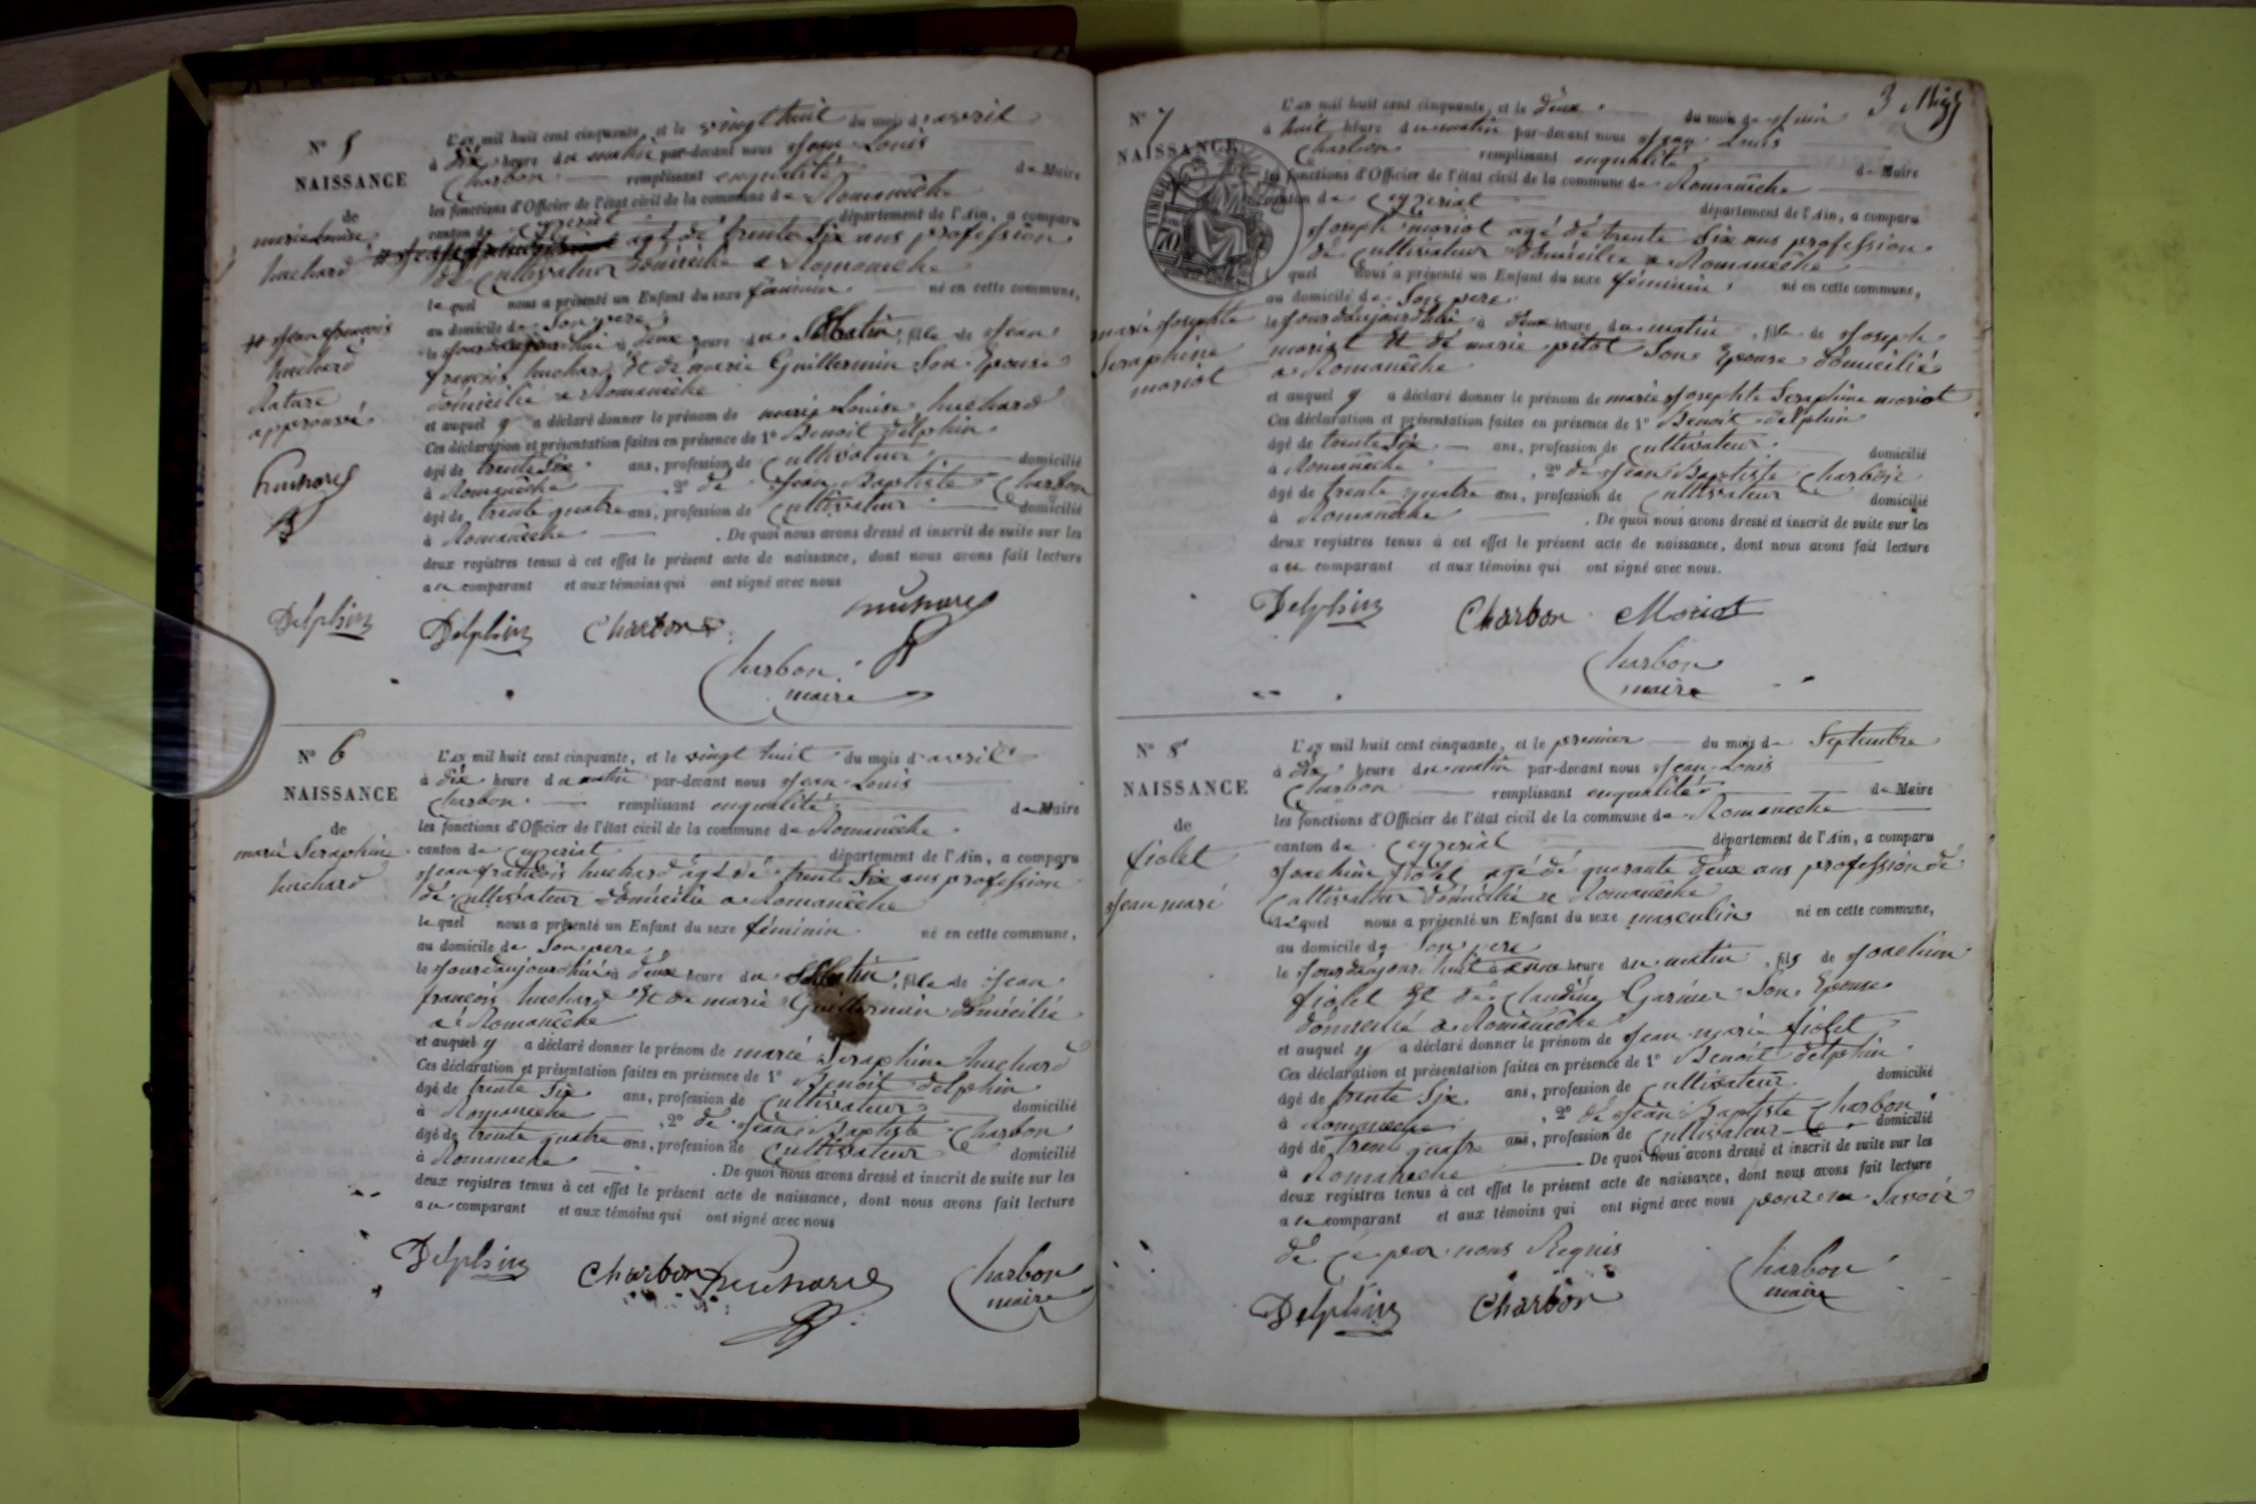 N° 5
NAISSANCE
de
marie Louise
huchard
# Jean françois
huchard
Rature
approuvé
huchard
Delphin
L'an mil huit cent cinquante, et le vingt huit du mois d'avril
à dix heure du matin par-devant nous Jean Louis
Charbon remplissant enqualité de Maire
les fonctions d'Officier de l'état civil de la commune de Romanêche
canton de Ceyzeriat département de l'Ain, a comparu
# agé de trente Six ans profession
de Cultivateur domicilié a Romanêche
le quel nous a présenté un Enfant du sexe féminin né en cette commune,
au domicile de Son pere
le Jourdaujourdhui à deux heure du Matin, fille de Jean
françois huchard Et de marie Guillermin Son Epouse
domicilié a Romanêche
et auquel y a déclaré donner le prénom de marie Louise huchard
Ces déclaration et présentation faites en présence de 1° Benoit delphin
âgé de trente Six ans, profession de Cultivateur domicilié
à Romanêche , 2° de Jean Baptiste Charbon
âgé de trente quatre ans, profession de Cultivateur domicilié
à Romanêche . De quoi nous avons dressé et inscrit de suite sur les
deux registres tenus à cet effet le présent acte de naissance, dont nous avons fait lecture
au comparant et aux témoins qui ont signé avec nous
Delphin Charbon huchard
Charbon
maire
N° 6
NAISSANCE
de
marie Seraphine
huchard
L'an mil huit cent cinquante, et le vingt huit du mois d'avril
à dix heure du matin par-devant nous Jean Louis
Charbon remplissant enqualité de Maire
les fonctions d'Officier de l'état civil de la commune de Romanêche
canton de Ceyzeriat département de l'Ain, a comparu
Jean françois huchard agé de trente Six ans profession
de Cultivateur domicilié a Romanêche
le quel nous a présenté un Enfant du sexe féminin né en cette commune,
au domicile de Son pere
le Jourdaujourdhui à deux heure du Matin, fille de Jean
françois huchard Et de marie Guillermin domicilié
a Romanêche
et auquel y a déclaré donner le prénom de marie Seraphine huchard
Ces déclaration et présentation faites en présence de 1° Benoit delphin
âgé de trente Six ans, profession de Cultivateur domicilié
à Romaneche , 2° de Jean Baptiste Charbon
âgé de trente quatre ans, profession de Cultivateur domicilié
à Romaneche . De quoi nous avons dressé et inscrit de suite sur les
deux registres tenus à cet effet le présent acte de naissance, dont nous avons fait lecture
au comparant et aux témoins qui ont signé avec nous
Delphin Charbon huchard Charbon
maire
3
N° 7
NAISSANCE
TIMBRE
70
marie Josephte
Seraphine
moriot
L'an mil huit cent cinquante, et le deux du mois de Juin
à huit heure du matin par-devant nous Jean Louis
Charbon remplissant enqualité de Maire
les fonctions d'Officier de l'état civil de la commune de Romanêche
canton de Ceyzeriat département de l'Ain, a comparu
Joseph moriot agé de trente Six ans profession
de Cultivateur domicilié a Romanêche
quel nous a présenté un Enfant du sexe féminin né en cette commune,
au domicile de Son pere
le Jourdaujourdhui à deux heure du matin , fille de Joseph
moriot Et de marie pitot Son Epouse domicilié
a Romanêche
et auquel y a déclaré donner le prénom de marie Josephte Seraphine moriot
Ces déclaration et présentation faites en présence de 1° Benoit delphin
âgé de trente Six ans, profession de Cultivateur domicilié
à Romanêche , 2° de Jean Baptiste Charbon
âgé de trente quatre ans, profession de Cultivateur domicilié
à Romanêche . De quoi nous avons dressé et inscrit de suite sur les
deux registres tenus à cet effet le présent acte de naissance, dont nous avons fait lecture
au comparant et aux témoins qui ont signé avec nous.
Delphin Charbon Moriot
Charbon
maire
N° 8
NAISSANCE
de
fiolet
Jean marie
L'an mil huit cent cinquante, et le premier du mois de Septembre
à dix heure du matin par-devant nous Jean Louis
Charbon remplissant enqualité de Maire
les fonctions d'Officier de l'état civil de la commune de Romaneche
canton de Ceyzeriat département de l'Ain, a comparu
Joachim fiolet agé de quarante deux ans profession de
Cultivateur domicilié a Romanêche
lequel nous a présenté un Enfant du sexe masculin né en cette commune,
au domicile de Son pere
le Jourdaujourdhui à heure du matin , fils de Joachim
fiolet Et de Claudine Garnier Son Epouse
domicilié a Romanêche
et auquel y a déclaré donner le prénom de Jean marie fiolet
Ces déclaration et présentation faites en présence de 1° Benoit delphin
âgé de trente Six ans, profession de Cultivateur domicilié
à Romaneche , 2° de Jean Baptiste Charbon
âgé de trente quatre ans, profession de Cultivateur domicilié
à Romaneche . De quoi nous avons dressé et inscrit de suite sur les
deux registres tenus à cet effet le présent acte de naissance, dont nous avons fait lecture
au comparant et aux témoins qui ont signé avec nous
de Ce par nous Requis
Delphin Charbon Charbon
maire